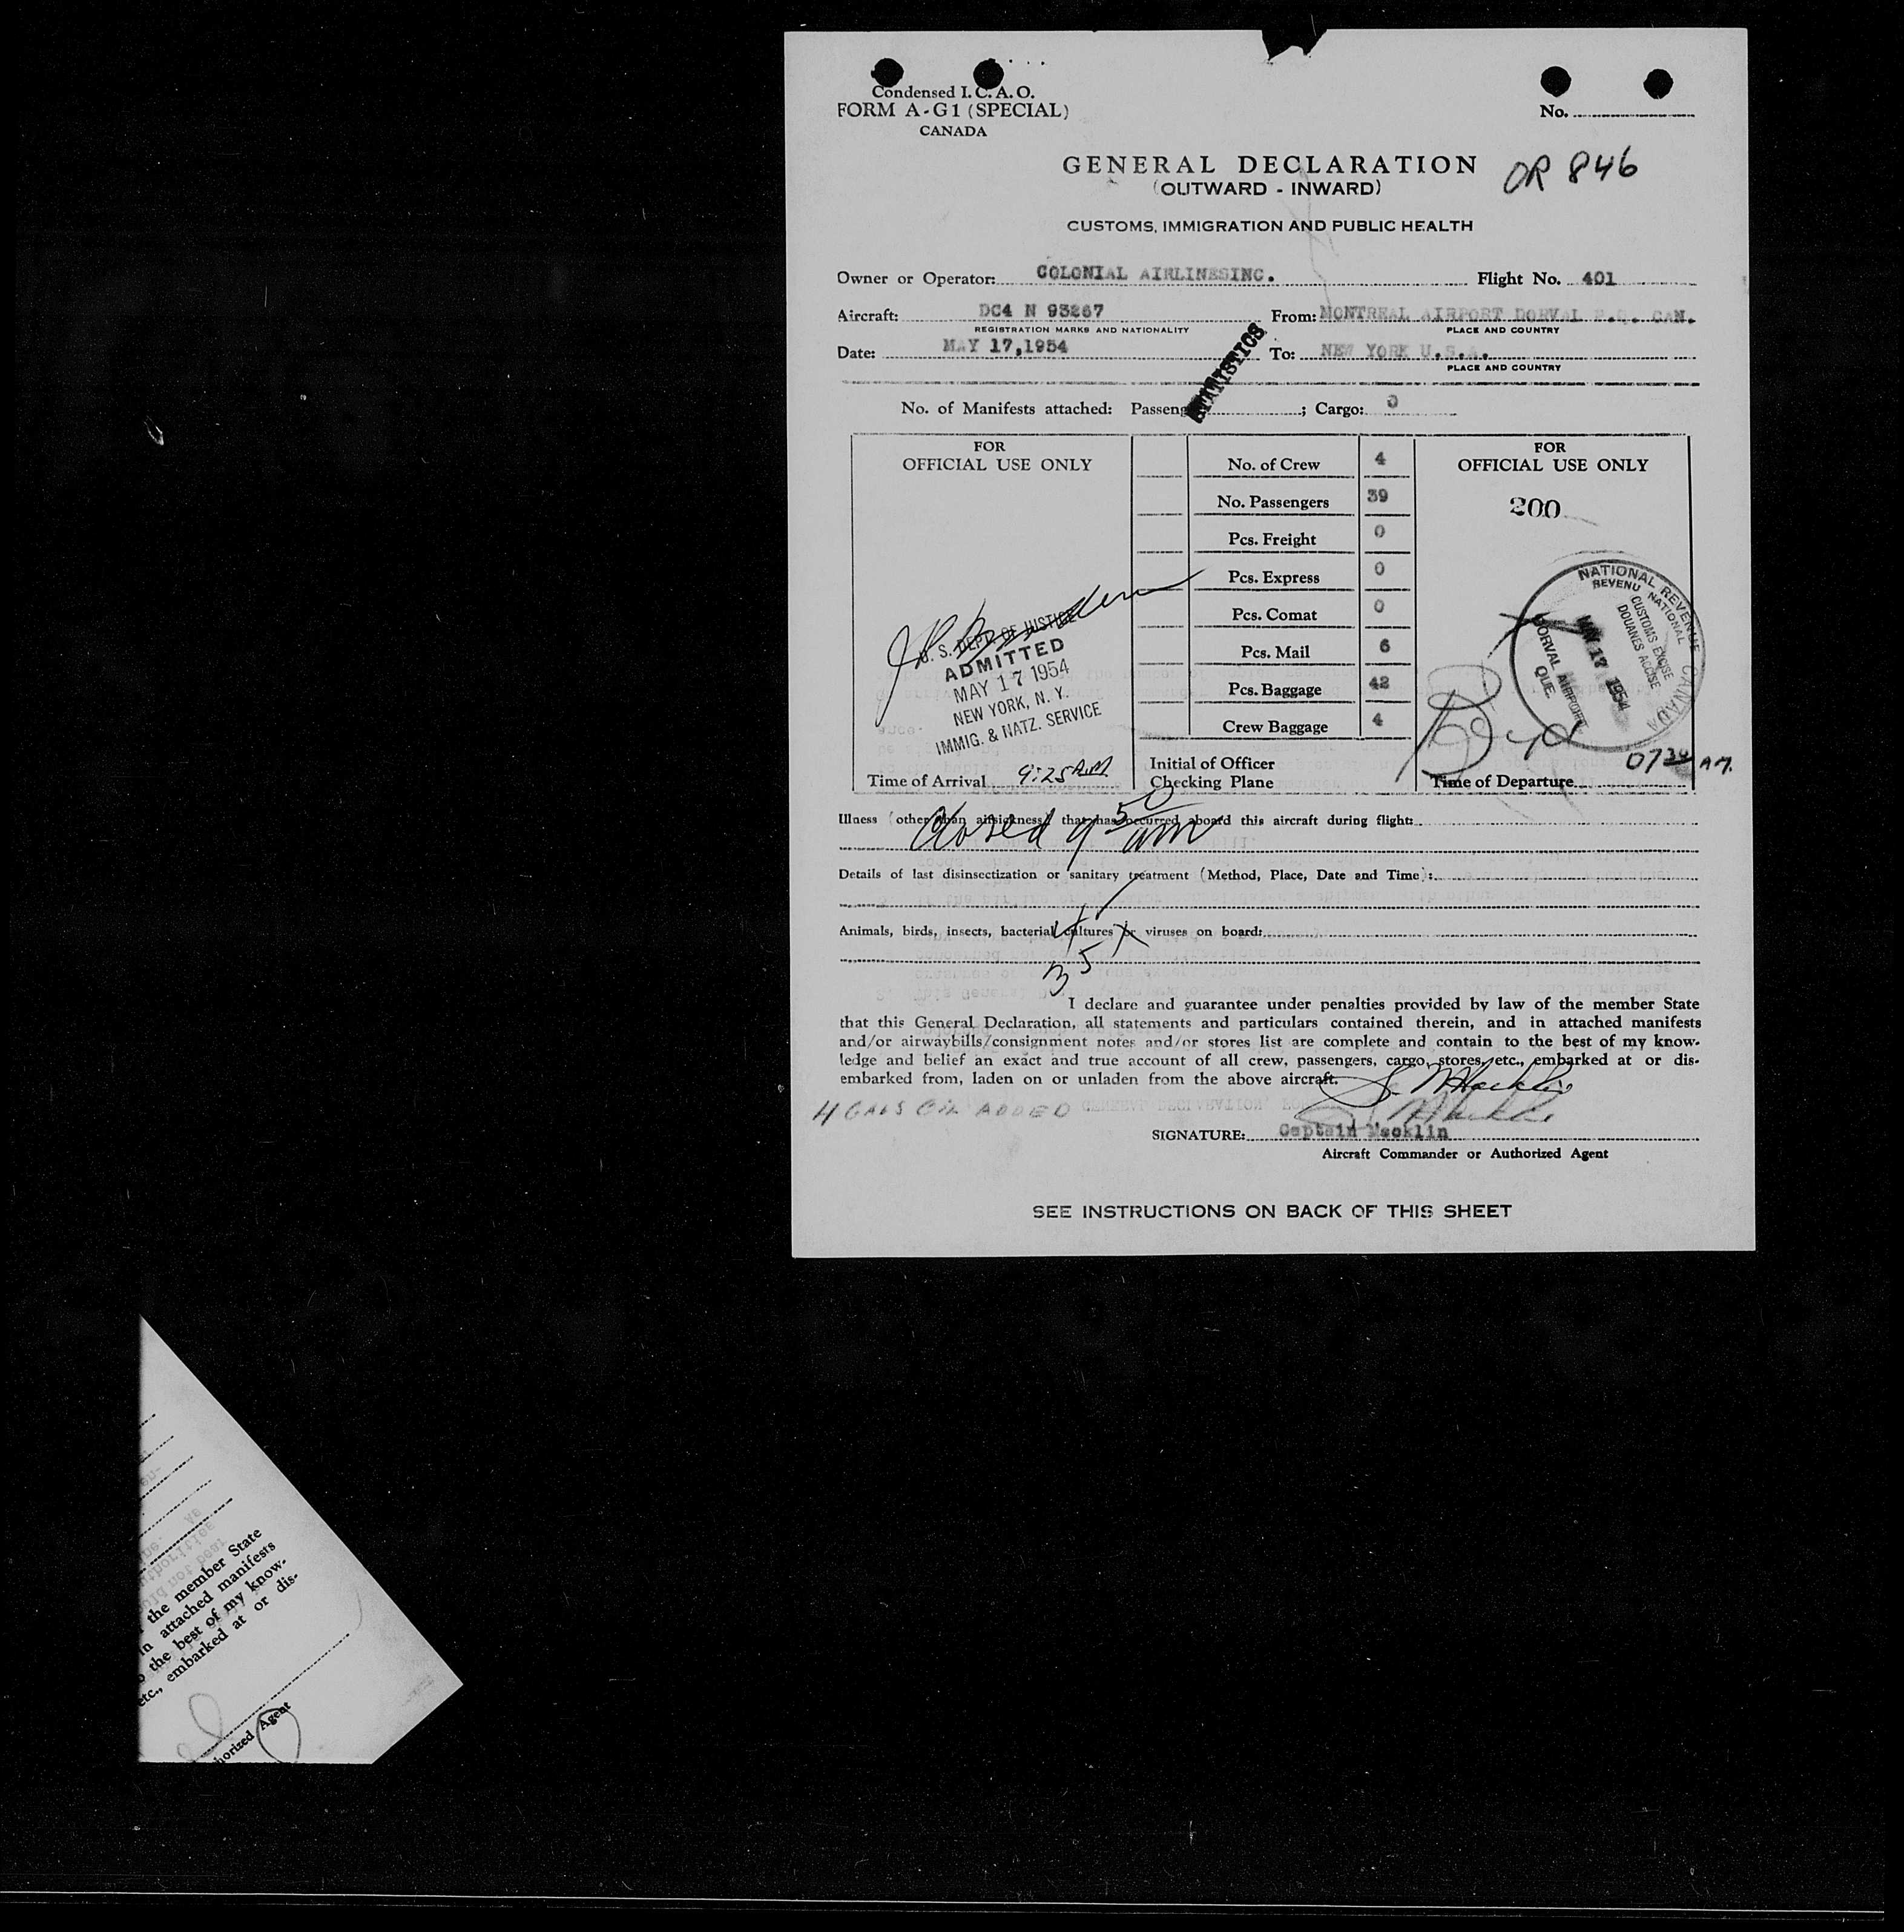 Condensed I.C.A.O.
FORM A-G1 (SPECIAL)
CANADA
No.
GENERAL DECLARATION
(OUTWARD - INWARD)
OR 846
CUSTOMS, IMMIGRATION AND PUBLIC HEALTH
Owner or Operator: COLONIAL AIRLINESINC. Flight No. 401
Aircraft: DC4 N 93267 From: MONTREAL AIRPORT DORVAL P.Q. CAN.
REGISTRATION MARKS AND NATIONALITY PLACE AND COUNTRY
Date: MAY 17,1954 To: NEW YORK U.S.A.
PLACE AND COUNTRY
STATISTICS
No. of Manifests attached: Passeng ; Cargo: 0
FOR
OFFICIAL USE ONLY
No. of Crew 4
No. Passengers 39
Pcs. Freight 0
Pcs. Express 0
Pcs. Comat 0
Pcs. Mail 6
Pcs. Baggage 42
Crew Baggage 4
FOR
OFFICIAL USE ONLY
200
NATIONAL REVENUE CANADA
REVENU NATIONAL
CUSTOMS EXCISE
DOUANES ACCISE
MAY 17 1954
DORVAL AIRPORT
QUE.
Boyd
U. S. DEPT. OF JUSTICE
ADMITTED
MAY 17 1954
NEW YORK, N. Y.
IMMIG. & NATZ. SERVICE
Time of Arrival 9:25 AM
Initial of Officer
Checking Plane
Time of Departure 0730 A.M.
Illness (other than airsickness) that has occurred aboard this aircraft during flight:
Closed 9 50 am
Details of last disinsectization or sanitary treatment (Method, Place, Date and Time):
Animals, birds, insects, bacterial cultures or viruses on board:
35
I declare and guarantee under penalties provided by law of the member State
that this General Declaration, all statements and particulars contained therein, and in attached manifests
and/or airwaybills/consignment notes and/or stores list are complete and contain to the best of my know-
ledge and belief an exact and true account of all crew, passengers, cargo, stores, etc., embarked at or dis-
embarked from, laden on or unladen from the above aircraft.
4 GALS OIL ADDED
SIGNATURE: Captain Macklin
Aircraft Commander or Authorized Agent
SEE INSTRUCTIONS ON BACK OF THIS SHEET
the member State
in attached manifests
the best of my know-
etc., embarked at or dis-
horized Agent